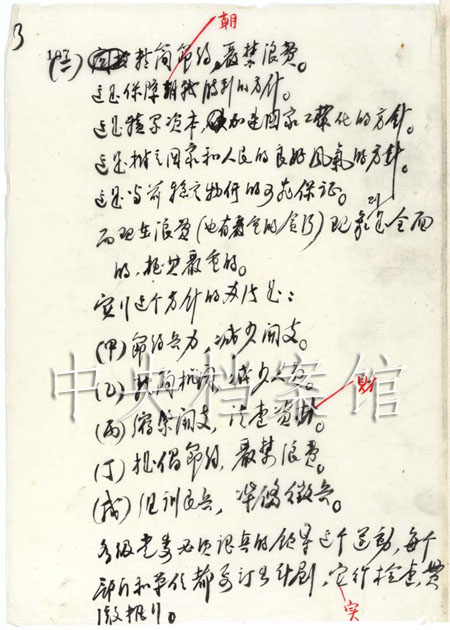 3
朝
(二) 节约,严禁浪费。
这是保障朝战胜利的方针。
这是积累资本,加速国家工业化的方针。
这是树立国家和人民的良好风气的方针。
这是当前稳定物价的可靠保证。
而现在浪费(也有严重的贪污)现象是全面
的,极其严重的。
实行这个方针的办法是:
(甲)节约兵力,减少开支。
(乙)机构,减少人员。
(丙)缩紧开支,清查资财。
财
(丁)提倡节约,严禁浪费。
(戊)组训民兵,准备征兵。
各级党委必须认真的领导这个运动,每个
部门和单位都要订出计划,定作检查,贯
彻执行。
实
中央档案馆